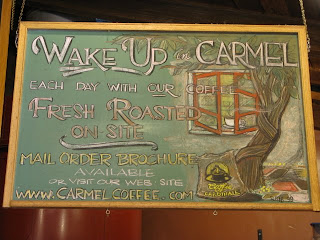 WAKE UP in CARMEL
EACH DAY WITH OUR COFFEE
FRESH ROASTED
ON SITE
MAIL ORDER BROCHURE
AVAILABLE
OR VISIT OUR WEB SITE
WWW.CARMELCOFFEE.COM